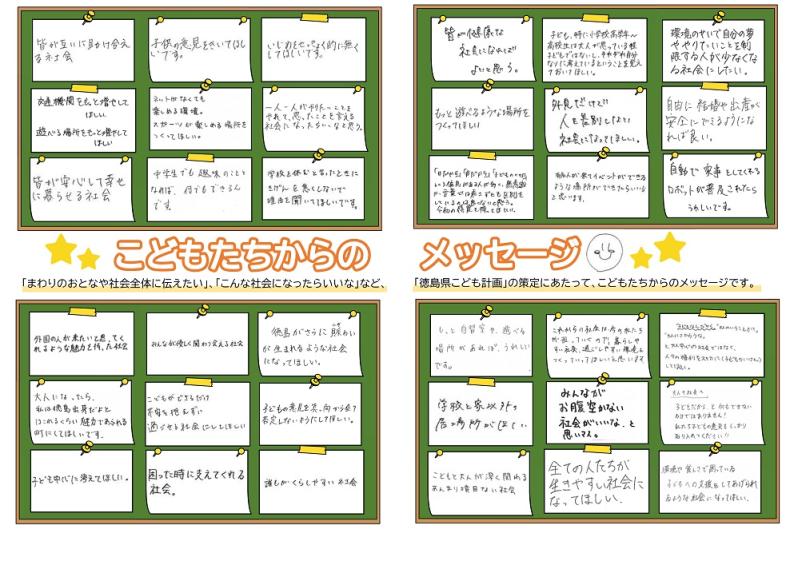 皆が互いに助け合える社会
子供の意見をきいてほしいです。
いじめをせっきょく的に無くしてほしいです。
交通機関をもっと増やしてほしい
遊べる場所をもっと増やしてほしい
ネットがなくても
楽しめる環境。
スポーツが楽しめる場所を
つくってほしい。
一人一人が
思ったことを言える
社会になったらいいなと思う。
皆が安心して幸せ
に暮らせる社会
中学生でも趣味のこと
なれば、何でもできるんです。
学校を休むと言ったときに
きげんを悪くしないで
理由を聞いてほしいです。
皆が健康な
社会になれば
よいと思う。
子ども、特に小学校高学年〜
高校生は大人が思っている程
子どもではないし、それぞれ自分
なりに考えているということを覚え
ておいてほしい。
環境のせいで自分の夢
ややりたいことを制
限する人が少なくな
る社会にしたい。
もっと遊べるような場所を
つくってほしい
外見だけで
人を差別しない
社会になってほしい。
自由に結婚や出産が
安全にやるようにな
れば良い。
自動で家事をしてくれる
ロボットが普及されたら
うれしいです。
こどもたちからの
メッセージ
「まわりのおとなや社会全体に伝えたい」、「こんな社会になったらいいな」など、
「徳島県こども計画」の策定にあたって、こどもたちからのメッセージです。
外国の人が来たいと思ってく
れるような魅力を持った社会
みんなが優しく関わり合える社会
徳島がさらに賑わい
が生まれるような社会
になってほしい。
大人になったら、
私は徳島出身だよと
ほこれるぐらい魅力であふれる
町にしてほしいです。
こどもができるだけ
不安を抱えずに
過ごせる社会にしてほしい
子どもの意見を
否定しないようにしてほしい。
子ども中心に考えてほしい。
困った時に支えてくれる
社会。
誰もがくらしやすい社会
もっと自習室や、遊べる
場所があれば、うれしい
です。
これからの社会は今の私たち
が担っていくので、暮らしや
すい社会、過ごしやすい環境を
つくっていってほしいと思います
学校と家以外の
居場所がほしい
みんなが
お腹空かない
社会がいいな、と
思いマス。
大人社会へ
子どもだから、と何もできない
わけではありません!
私たち子どもの意見をしっかり
取り入れてください!!
こどもと大人が深く関われる
全ての人たちが
生きやすい社会に
なってほしい、
環境や貧しさで困っている
子どもへの支援をしてあげられ
るような社会になってほしい。